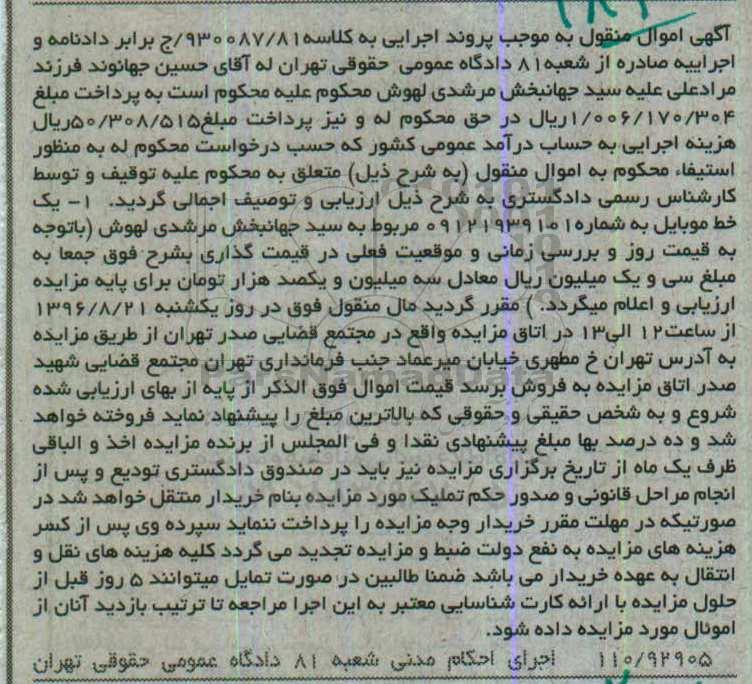 آگهی اموال منقول به موجب پروند اجرایی به کلاسه۹۳۰۰۸۷/۸۱/ج برابر دادنامه و
اجراییه صادره از شعبه۸۱ دادگاه عمومی حقوقی تهران له آقای حسین جهانوند فرزند
مرادعلی علیه سید جهانبخش مرشدی لهوش محکوم علیه محکوم است به پرداخت مبلغ
۱/۰۰۶/۱۷۰/۳۰۴ریال در حق محکوم له و نیز پرداخت مبلغ۵۰/۳۰۸/۵۱۵ریال
هزینه اجرایی به حساب درآمد عمومی کشور که حسب درخواست محکوم له به منظور
استیفاء محکوم به اموال منقول (به شرح ذیل) متعلق به محکوم علیه توقیف و توسط
کارشناس رسمی دادگستری به شرح ذیل ارزیابی و توصیف اجمالی گردید. ۱- یک
خط موبایل به شماره۰۹۱۲۱۹۳۹۱۰۱ مربوط به سید جهانبخش مرشدی لهوش (باتوجه
به قیمت روز و بررسی زمانی و موقعیت فعلی در قیمت گذاری بشرح فوق جمعا به
مبلغ سی و یک میلیون ریال معادل سه میلیون و یکصد هزار تومان برای پایه مزایده
ارزیابی و اعلام میگردد. ) مقرر گردید مال منقول فوق در روز یکشنبه ۱۳۹۶/۸/۲۱
از ساعت۱۲ الی۱۳ در اتاق مزایده واقع در مجتمع قضایی صدر تهران از طریق مزایده
به آدرس تهران خ مطهری خیابان میرعماد جنب فرمانداری تهران مجتمع قضایی شهید
صدر اتاق مزایده به فروش برسد قیمت اموال فوق الذکر از پایه از بهای ارزیابی شده
شروع و به شخص حقیقی و حقوقی که بالاترین مبلغ را پیشنهاد نماید فروخته خواهد
شد و ده درصد بها مبلغ پیشنهادی نقدا و فی المجلس از برنده مزایده اخذ و الباقی
ظرف یک ماه از تاریخ برگزاری مزایده نیز باید در صندوق دادگستری تودیع و پس از
انجام مراحل قانونی و صدور حکم تملیک مورد مزایده بنام خریدار منتقل خواهد شد در
صورتیکه در مهلت مقرر خریدار وجه مزایده را پرداخت ننماید سپرده وی پس از کسر
هزینه های مزایده به نفع دولت ضبط و مزایده تجدید می گردد کلیه هزینه های نقل و
انتقال به عهده خریدار می باشد ضمنا طالبین در صورت تمایل میتوانند ۵ روز قبل از
حلول مزایده با ارائه کارت شناسایی معتبر به این اجرا مراجعه تا ترتیب بازدید آنان از
اموئال مورد مزایده داده شود.
۱۱۰/۹۲۹۰۵ اجرای احکام مدنی شعبه ۸۱ دادگاه عمومی حقوقی تهران